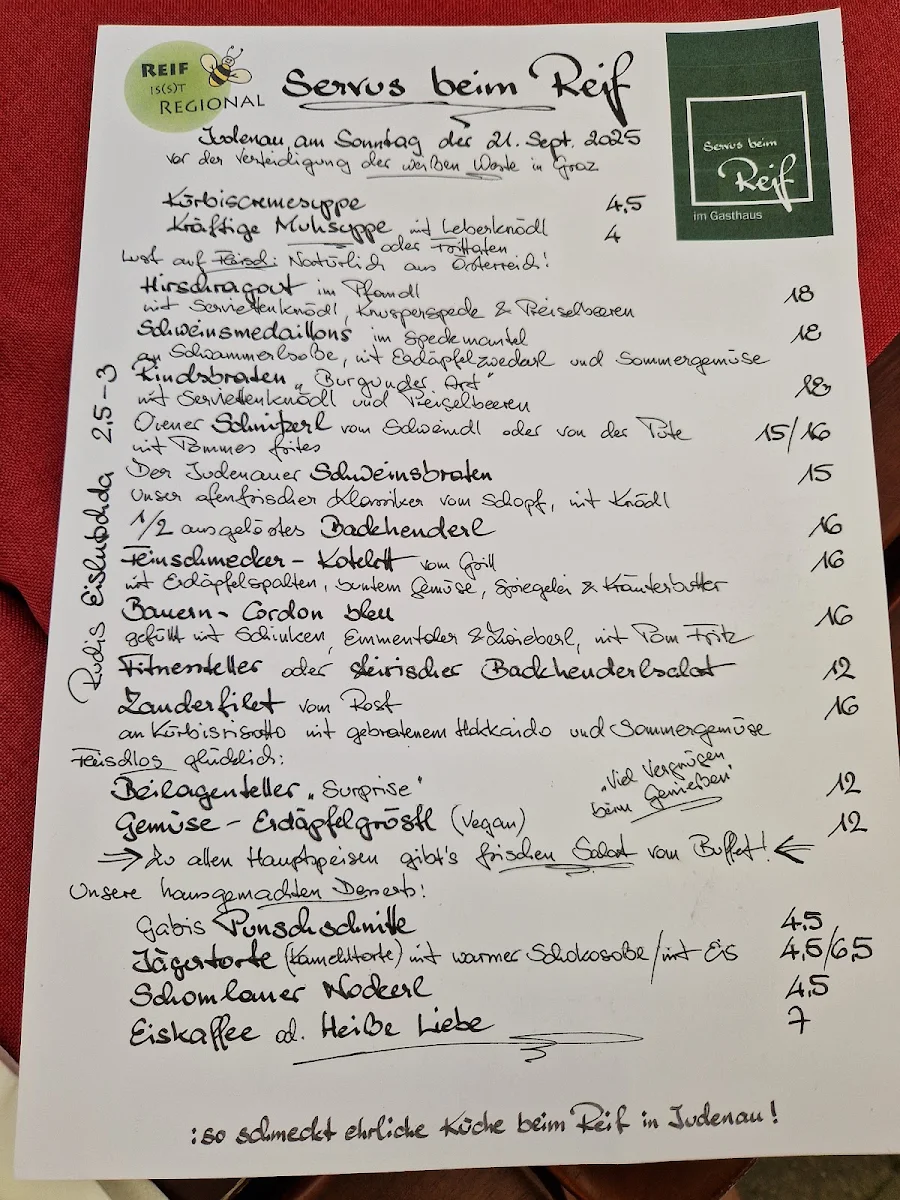 REIF
IS(S)T
REGIONAL
Servus beim Reif
Servus beim
Reif
im Gasthaus
Judenau, am Sonntag der 21. Sept. 2025
vor der Verteidigung der weißen Weste in Graz
Kürbiscremesuppe 4,5
Kräftige Muhsuppe mit Leberknödl 4
oder Frittaten
Lust auf Fleisch: Natürlich aus Österreich!
Hirschragout im Pfandl 18
mit Serviettenknödl, Knusperspeck & Preiselbeeren
Schweinsmedaillons im Speckmantel 18
an Schwammerlsoße, mit Erdäpfelzwedarl und Sommergemüse
Rindsbraten „Burgunder Art"
mit Serviettenknödl und Preiselbeeren
Wiener Schnitzerl vom Schweindl oder von der Pute 15/16
mit Pommes frites
Der Judenauer Schweinsbraten 15
Unser ofenfrischer Klassiker vom Schopf, mit Knödl
1/2 ausgelöstes Backhenderl 16
Feinschmecker-Kotelett vom Grill 16
mit Erdäpfelspalten, buntem Gemüse, Spiegelei & Kräuterbutter
Bauern-Cordon bleu 16
gefüllt mit Schinken, Emmentaler & Zwieberl, mit Pom Fritz
Fitnessteller oder steirischer Backhenderlsalat 12
Zanderfilet vom Rost 16
an Kürbisrisotto mit gebratenem Hokkaido und Sommergemüse
Fleischlos glücklich:
„Viel Vergnügen
beim Genießen"
Beilagenteller „Surprise" 12
Gemüse-Erdäpfelgröstl (Vegan) 12
→ Zu allen Hauptspeisen gibt's frischen Salat vom Buffet! ←
Unsere hausgemachten Desserts:
Gabis Punschschnitte 4,5
Jägertorte (Kamelttorte) mit warmer Schokosoße/mit Eis 4,5/6,5
Schomlauer Nockerl 4,5
Eiskaffee od. Heiße Liebe 7
:so schmeckt ehrliche Küche beim Reif in Judenau!
Rudis Eislutschda 2,5-3